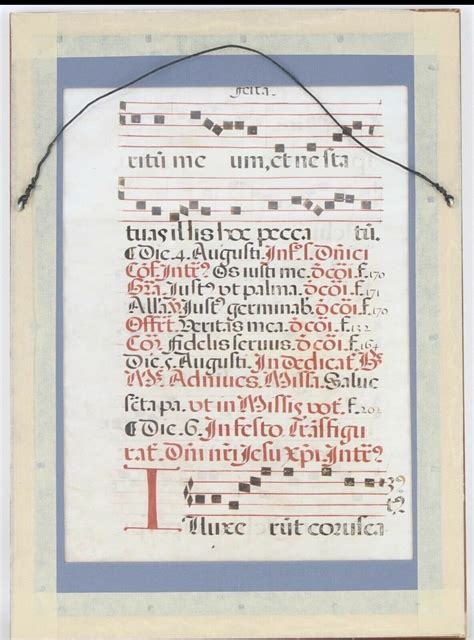 festa.
ritũ me um, et ne sta
tuas illis hoc pecca tũ.
Die. 4. Augusti. In fes. s. Dñici
Cõf. Intr? Os iusti me. d̃ cõi. f. 170
Gra. Just? ut palma. d̃ cõi. f. 170
Alla. V Just? germinab. d̃ cõi. f. 170
Offert. Veritas mea. d̃ cõi. f. 132
Cõ. Fidelis seruus. d̃ cõi. f. 164
Die. 5. Augusti. In dedicat.
Ad niues. Missa. Salue
sc̃ta pa. ut in Missis vot. f. 202
Die. 6. In festo Trãsfigu
rat. Dñi nr̃i Jesu xp̃i Intr?
Illuxe rũt corusca